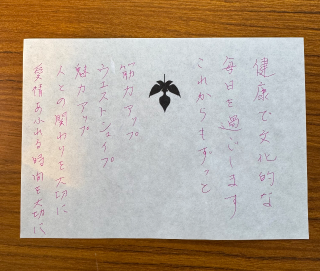 健康で文化的な
毎日を過ごします
これからもずっと
筋力アップ
ウエストシェイプ
魅力アップ
人との関わりを大切に
愛情あふれる時間を大切に